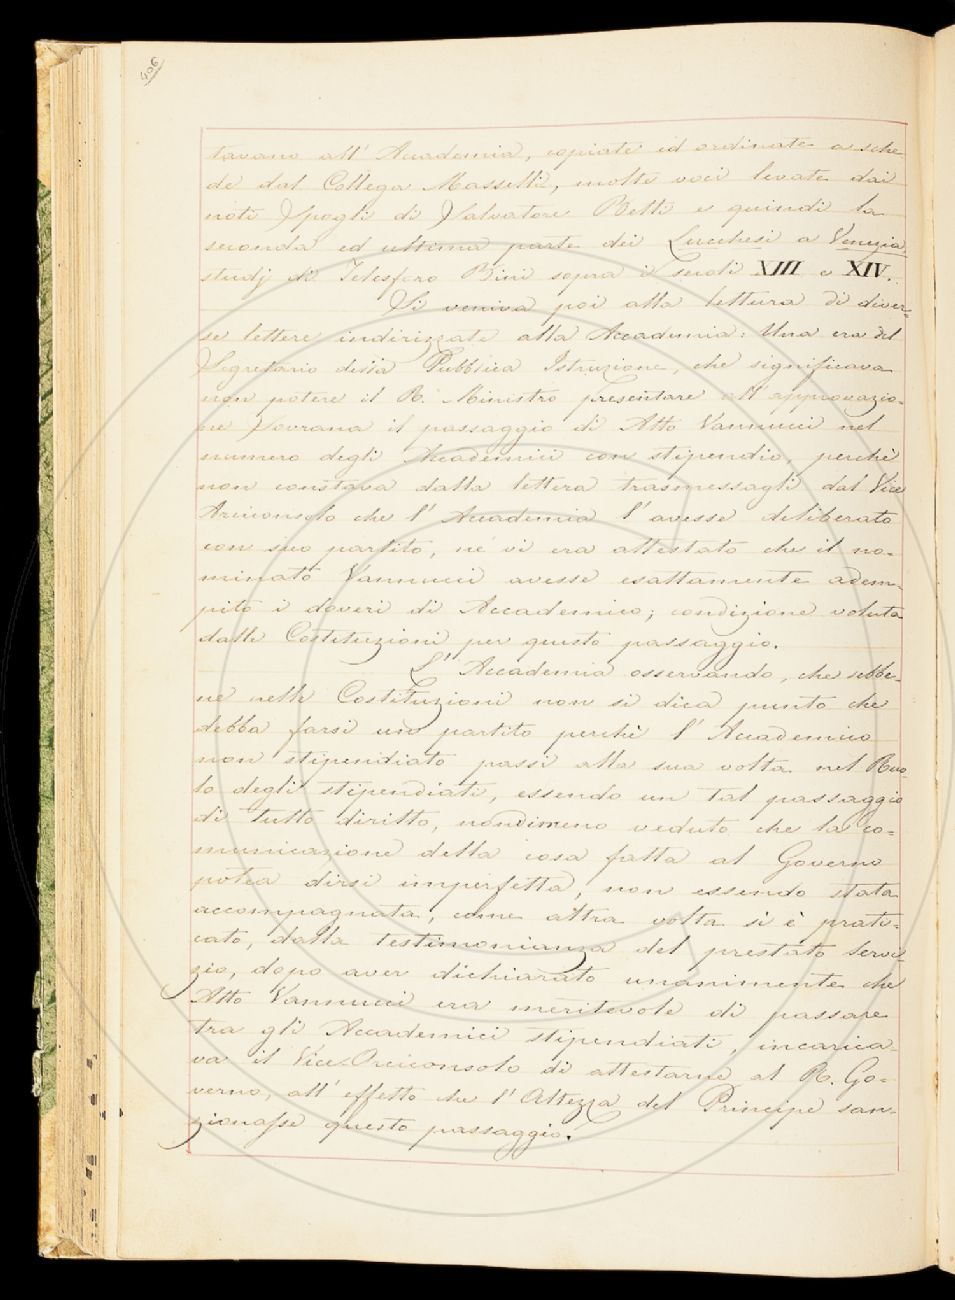 406
tavano all' Accademia, copiate ed ordinate a sche
de dal Collega Masselli, molte voci levate dai
noti Spogli di Salvatore Betti e quindi la
seconda ed ultima parte dei Lucchesi a Venezia
studj di Telesforo Bini sopra i Secoli XIII e XIV.
Si veniva poi alla lettura di diver-
se lettere indirizzate alla Accademia: Una era del
Segretario della Pubblica Istruzione, che significava
non potere il R. Ministro presentare all' approvazio-
ne Sovrana il passaggio di Atto Vannucci nel
numero degli Accademici con stipendio, perchè
non constava dalla lettera trasmessagli dal Vice
Arciconsolo che l' Accademia l' avesse deliberato
con suo partito, nè vi era attestato che il no-
minato Vannucci avesse esattamente adem-
pito i doveri di Accademico; condizione voluta
dalle Costituzioni per questo passaggio.
L' Accademia osservando, che sebbe-
ne nelle Costituzioni non si dica punto che
debba farsi uno partito perchè l' Accademico
non stipendiato passi alla sua volta nel Ruo-
lo degli stipendiati, essendo un tal passaggio
di tutto diritto, nondimeno veduto che la co-
municazione della cosa fatta al Governo
potea dirsi imperfetta, non essendo stata
accompagnata, come altra volta si è prati-
cato, dalla testimonianza del prestato Servi-
zio, dopo aver dichiarato unanimente che
Atto Vannucci era meritevole di passare
tra gli Accademici stipendiati, incarica-
va il Vice-Arciconsolo di attestarne al R. Go-
verno, all' effetto che l' Altezza del Principe san-
zionasse questo passaggio.